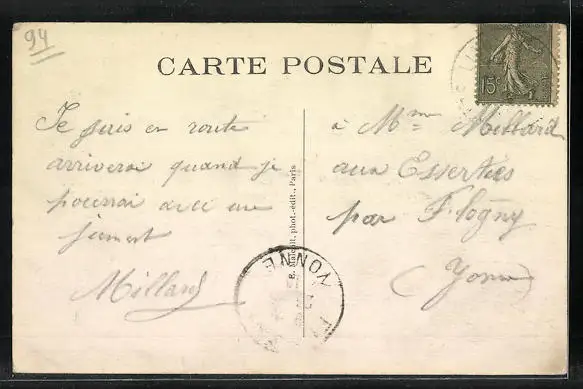 94
CARTE POSTALE
15c
Je suis en route
arriverai quand je
pourrai avec une
jument
Millard
à Mme Millard
aux Esserties
par Flogny
(Yonne)
phot.-édit., Paris
YONNE